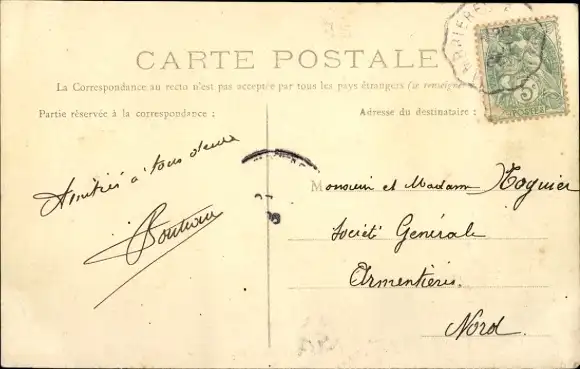 CARTE POSTALE
La Correspondance au recto n'est pas acceptée par tous les pays étrangers (se renseigner
Partie réservée à la correspondance :
Adresse du destinataire :
5c
POSTES
Amitiés à tous deux
Monsieur et Madame
Société Générale
Armentières.
Nord.